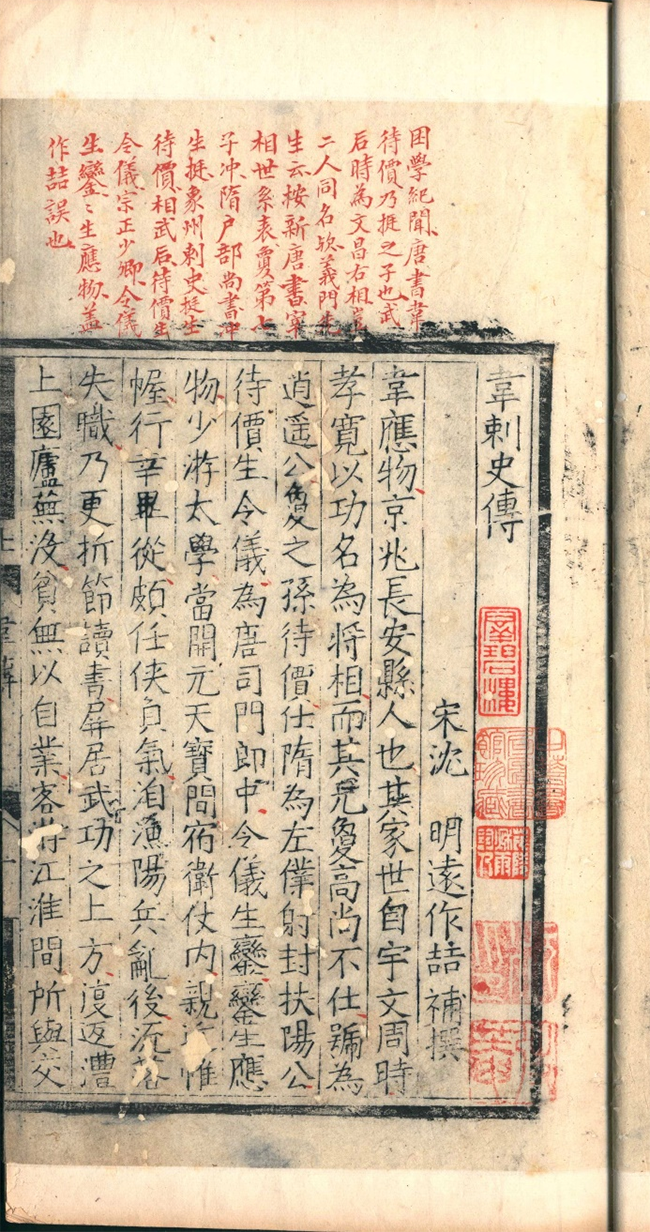 困學紀聞唐書韋
待價乃挺之子也武
后時為文昌右相豈
二人同名欤義門先
生云按新唐書宰
相世系表賈第七
子沖隋户部尚書冲
生挺象州刺史挺生
待價相武后待價生
令儀宗正少卿令儀
生鑾鑾生應物蓋
作喆誤也
韋刺史傳
宋沈 明遠作喆 補撰
韋應物京兆長安縣人也其家世自宇文周時
孝寬以功名為將相而其兄敻高尚不仕號為
逍遥公敻之孫待價仕隋為左僕射封扶陽公
待價生令儀為唐司門郎中令儀生鑾鑾生應
物少游太學當開元天寶間宿衛仗内親近帷
幄行幸畢從頗任俠負氣洎漁陽兵亂後流落
失職乃更折節讀書屏居武功之上方復返澧
上園廬蕪没貧無以自業客游江淮間所與交